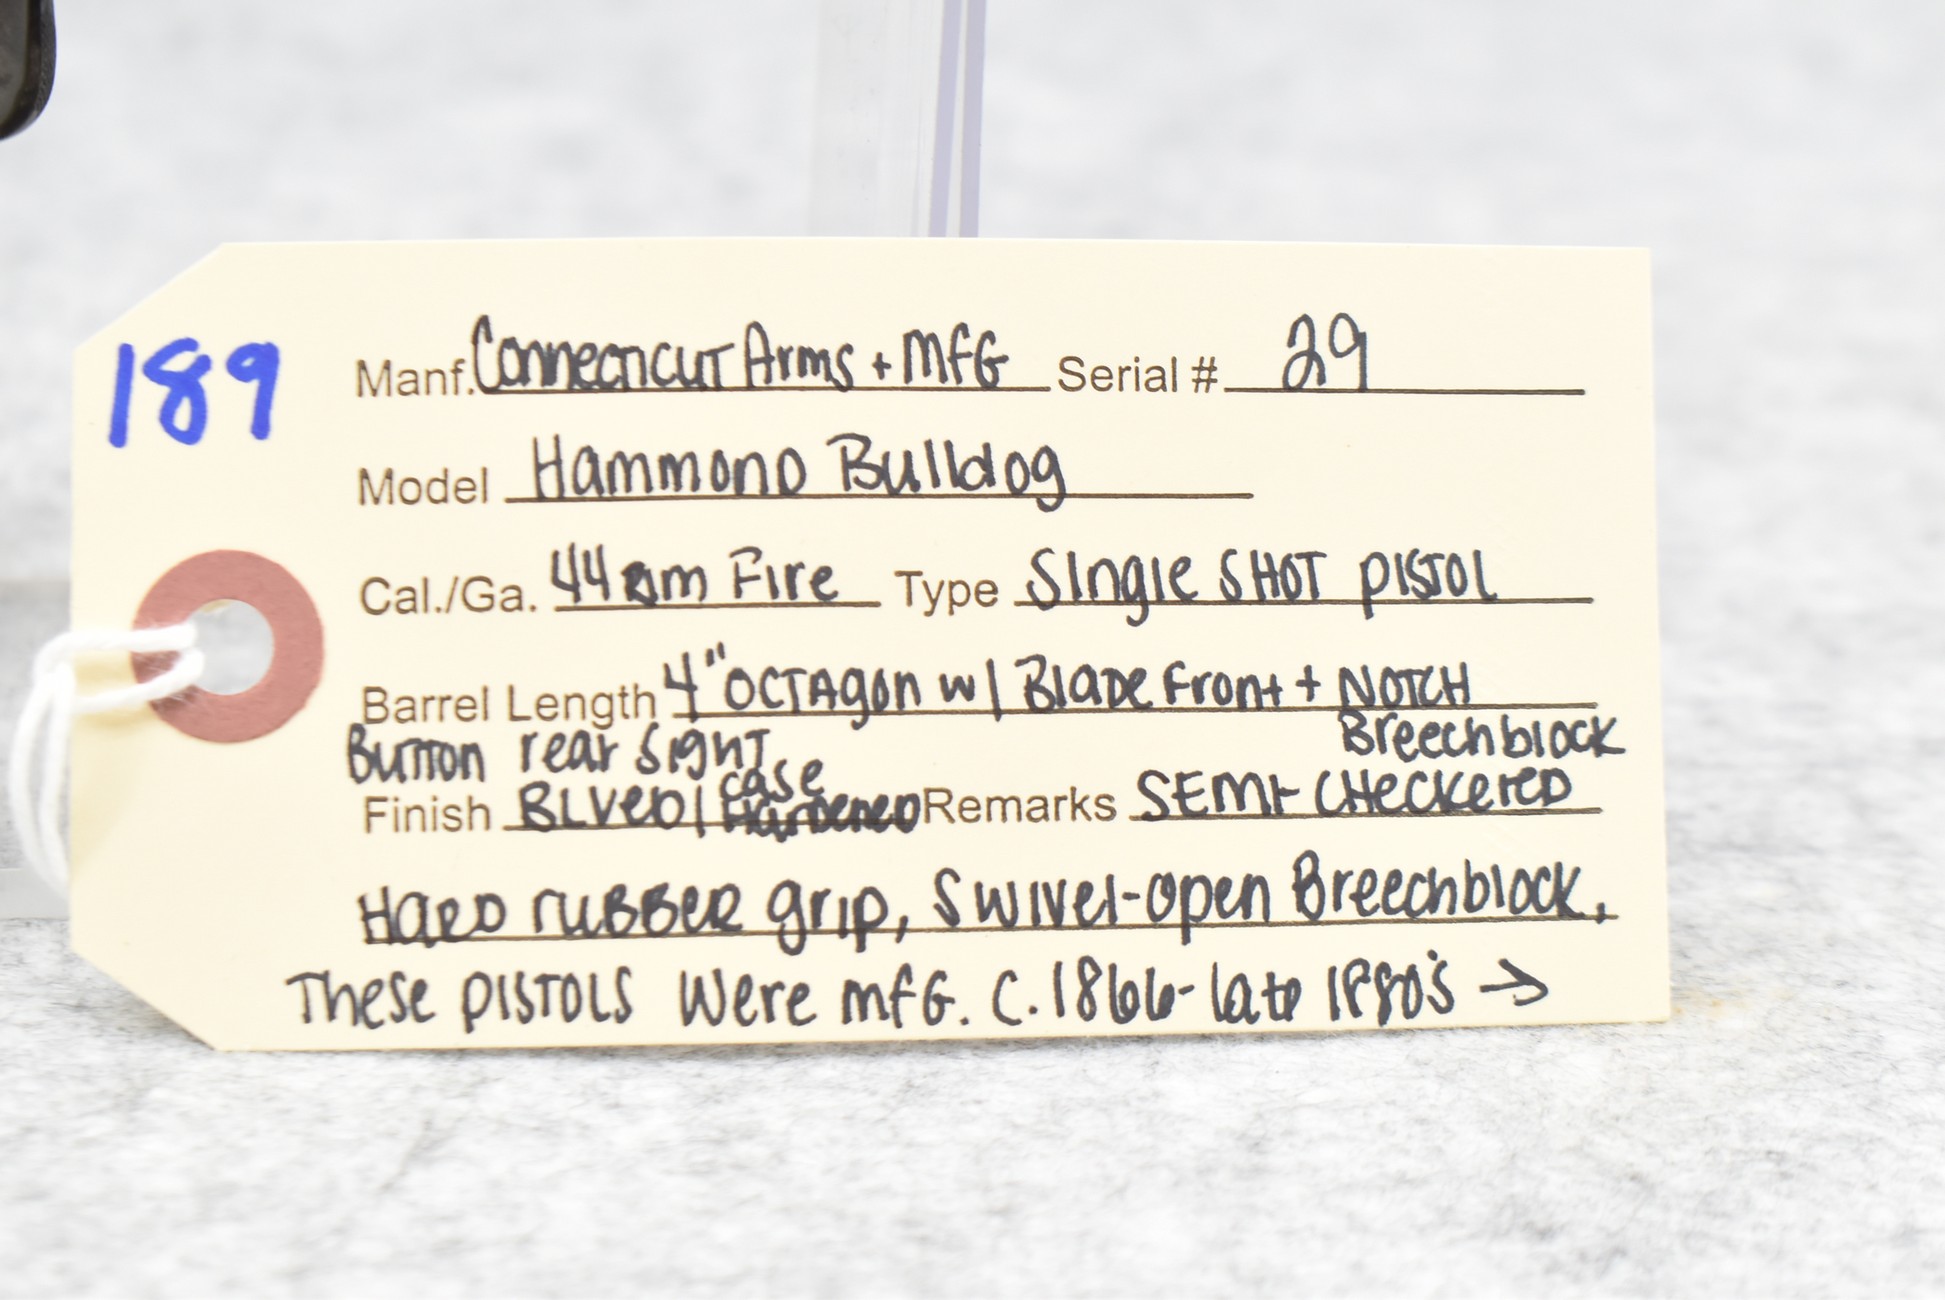 189
Manf. Connecticut Arms + MFG Serial # 29
Model Hammond Bulldog
Cal./Ga. 44 Rim Fire Type Single SHOT PISTOL
Barrel Length 4" OCTAgon w/ Blade Front + NOTCH
Button rear Sight Breechblock
Finish BLUED/ case Hardened Remarks SEMI-CHeckered
Hard rubber grip, Swivel-open Breechblock.
These PISTOLS Were mfg. C. 1866-late 1880's →